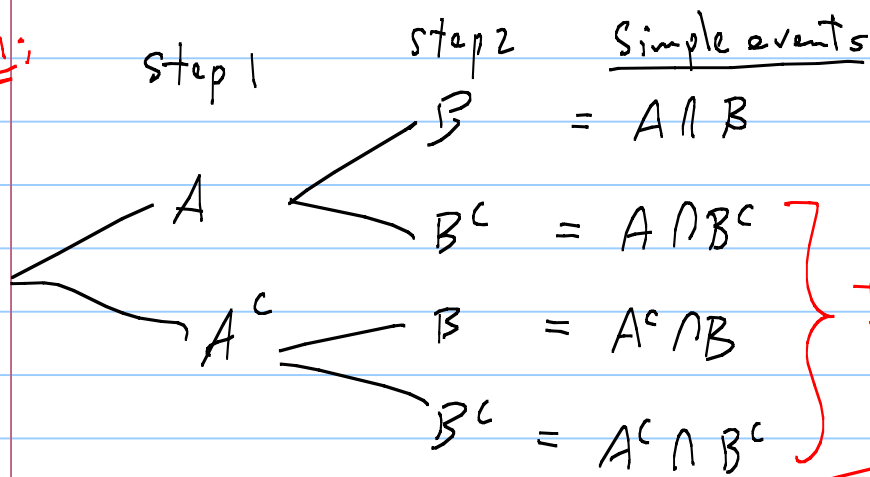 Step 1 Step 2 Simple events
B = A ∩ B
A
B^c = A ∩ B^c
B = A^c ∩ B
A^c
B^c = A^c ∩ B^c